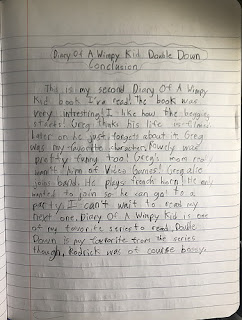 Diary Of A Wimpy Kid Double Down
Conclusion
This is my second Diary Of A Wimpy
Kid book I've read. The book was
very intresting! I like how the beggie
starts! Greg thinks his life is
Later on he just forgets about it. Greg
was my favorite character, Rowley was
pretty funny too! Greg's mom
want him at Video Games! Greg also
joins band. He plays french horn! He
wanted to join so he can go to a
party. I can't wait to read my
next one. Diary Of A Wimpy Kid is one
of my favorite series to read, Double
Down is my favorite from the series
though, Rodrick was of course bossy.